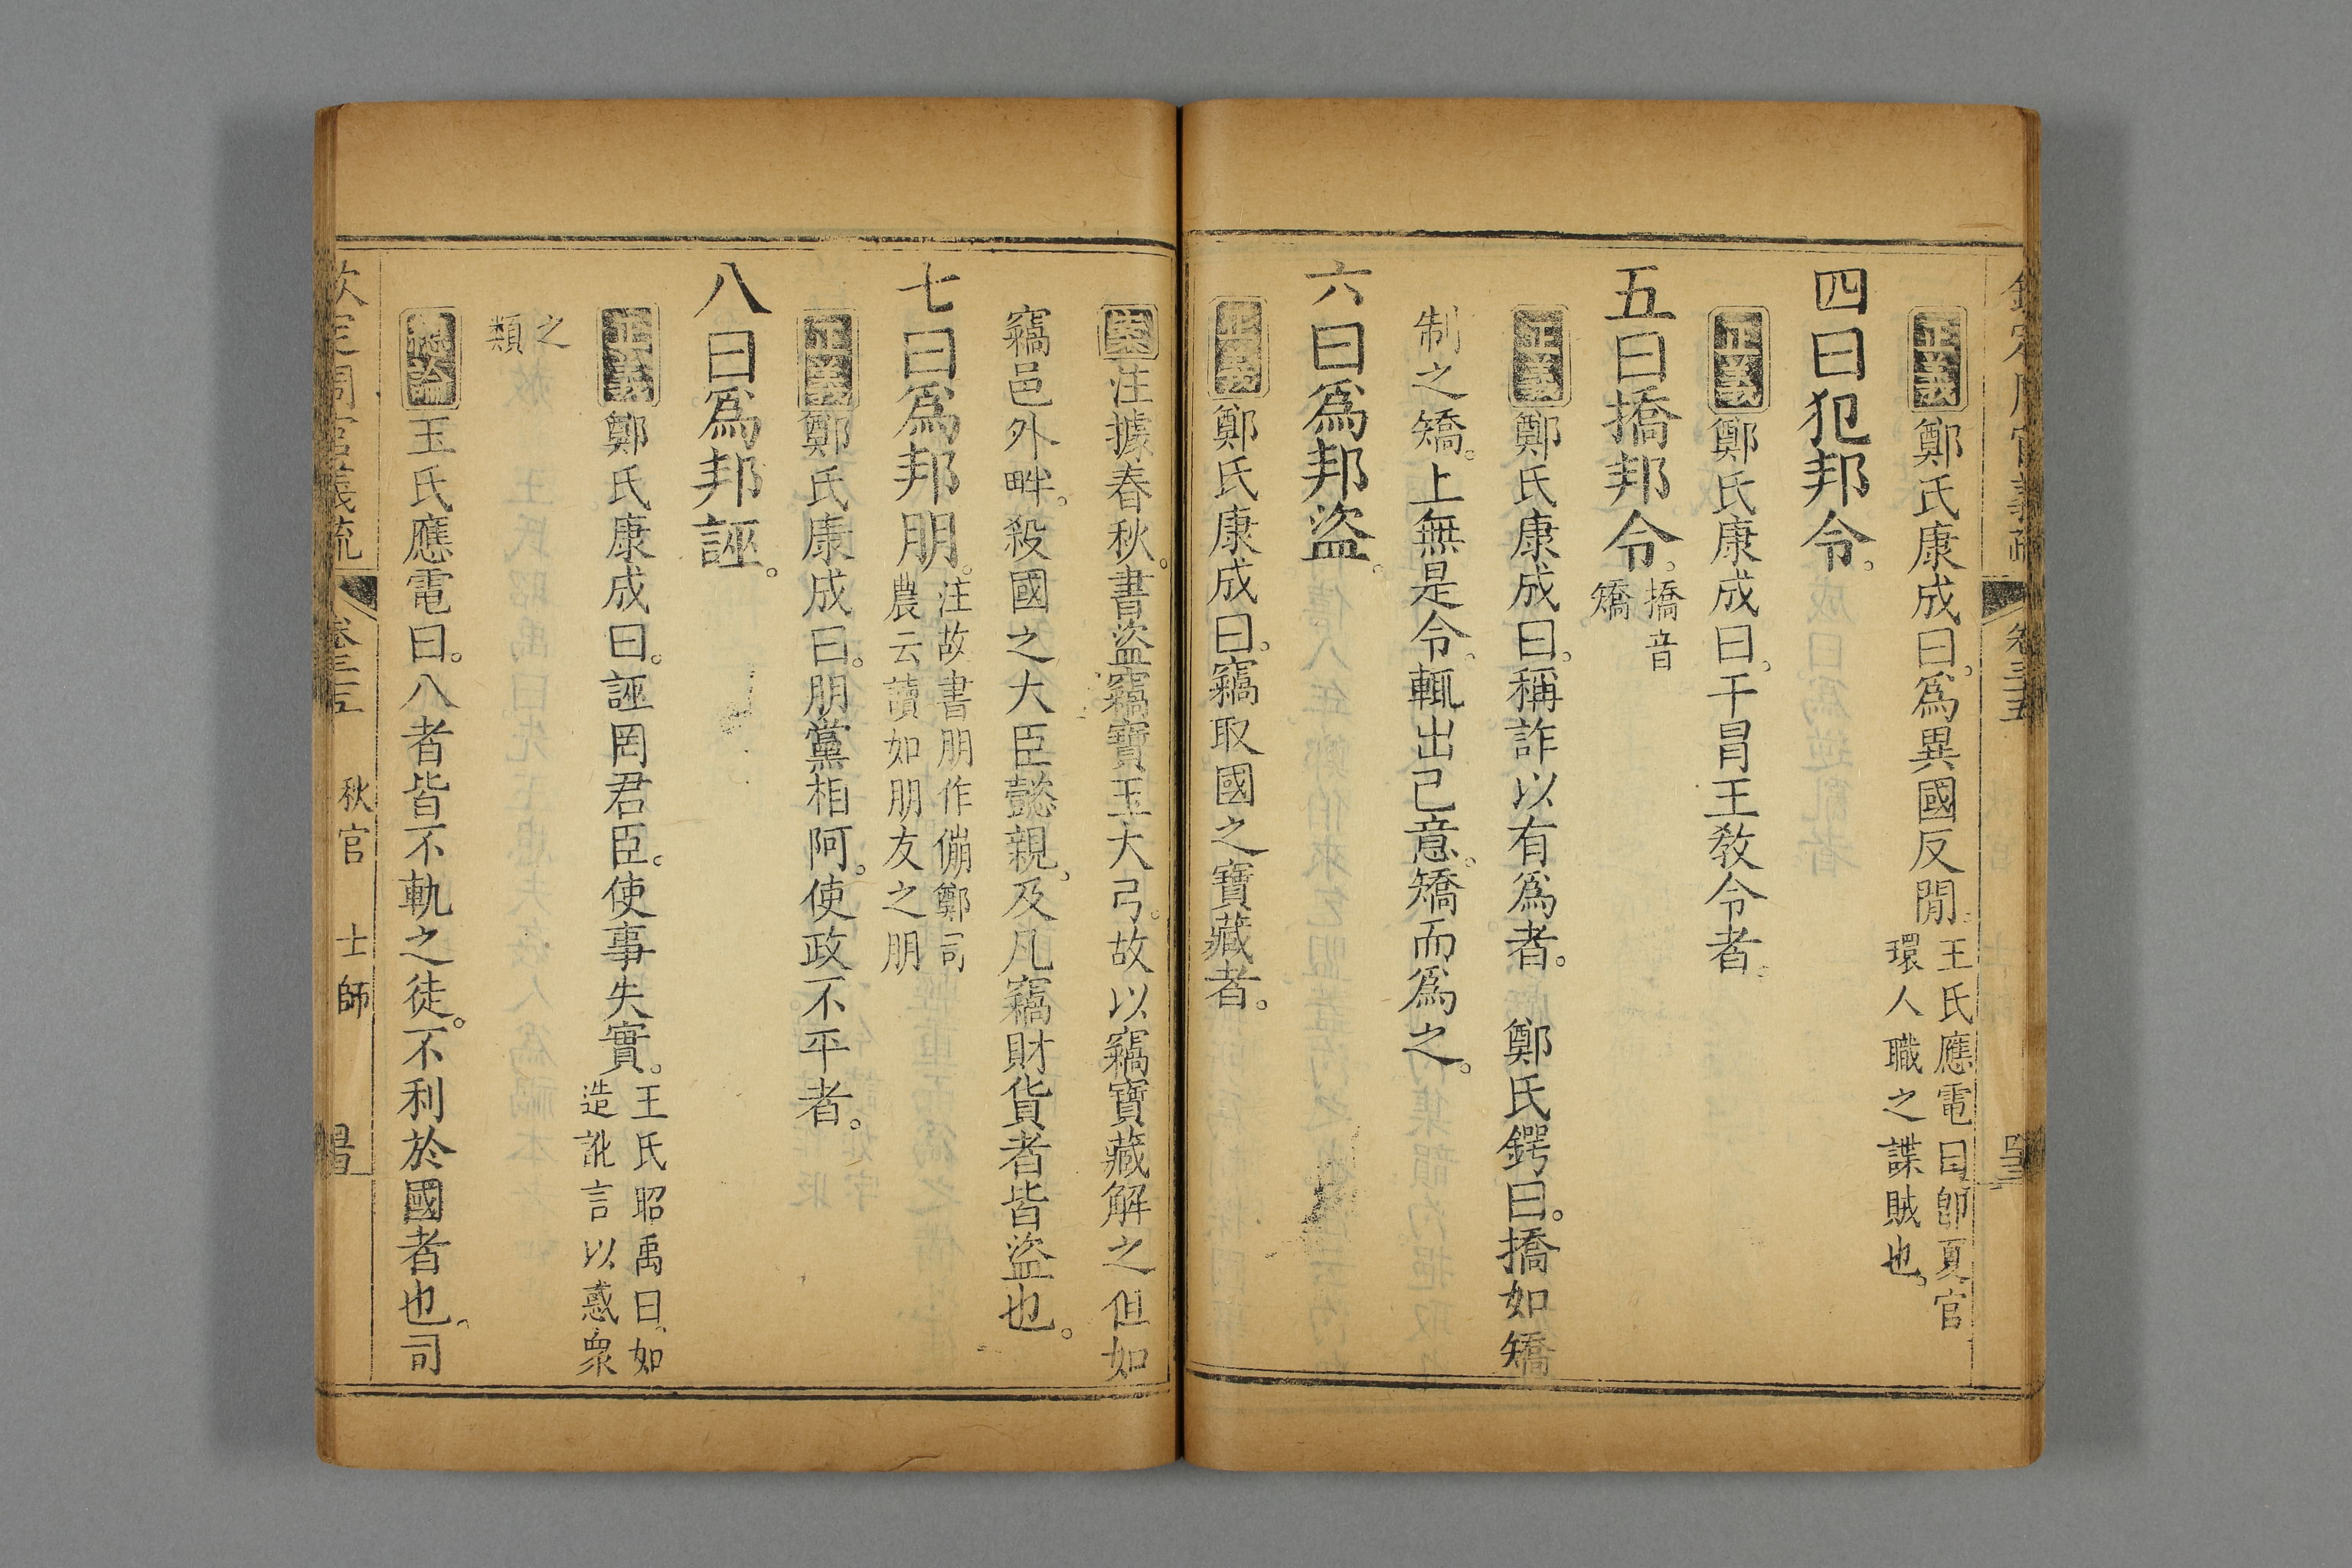 正義鄭氏康成曰。爲異國反閒。王氏應電曰卽夏官
環人職之諜賊也。
四曰犯邦令。
正義鄭氏康成曰。干冒王敎令者。
五曰撟邦令。撟音
矯
正義鄭氏康成曰。稱詐以有爲者。 鄭氏鍔曰。撟如矯
制之矯。上無是令。輒出己意。矯而爲之。
六曰爲邦盜。
正義鄭氏康成曰。竊取國之寶藏者。
案注據春秋。書盜竊寶玉大弓。故以竊寶藏解之但如
竊邑外畔。殺國之大臣懿親。及凡竊財貨者皆盜也。
七曰爲邦朋。注故書朋作傰鄭司
農云讀如朋友之朋
正義鄭氏康成曰。朋黨相阿。使政不平者。
八曰爲邦誣。
正義鄭氏康成曰。誣罔君臣。使事失實。王氏昭禹曰。如
造訛言以惑衆
之
類
總論王氏應電曰。八者皆不軌之徒。不利於國者也。司
欽定周官義疏 卷三十五 秋官 士師